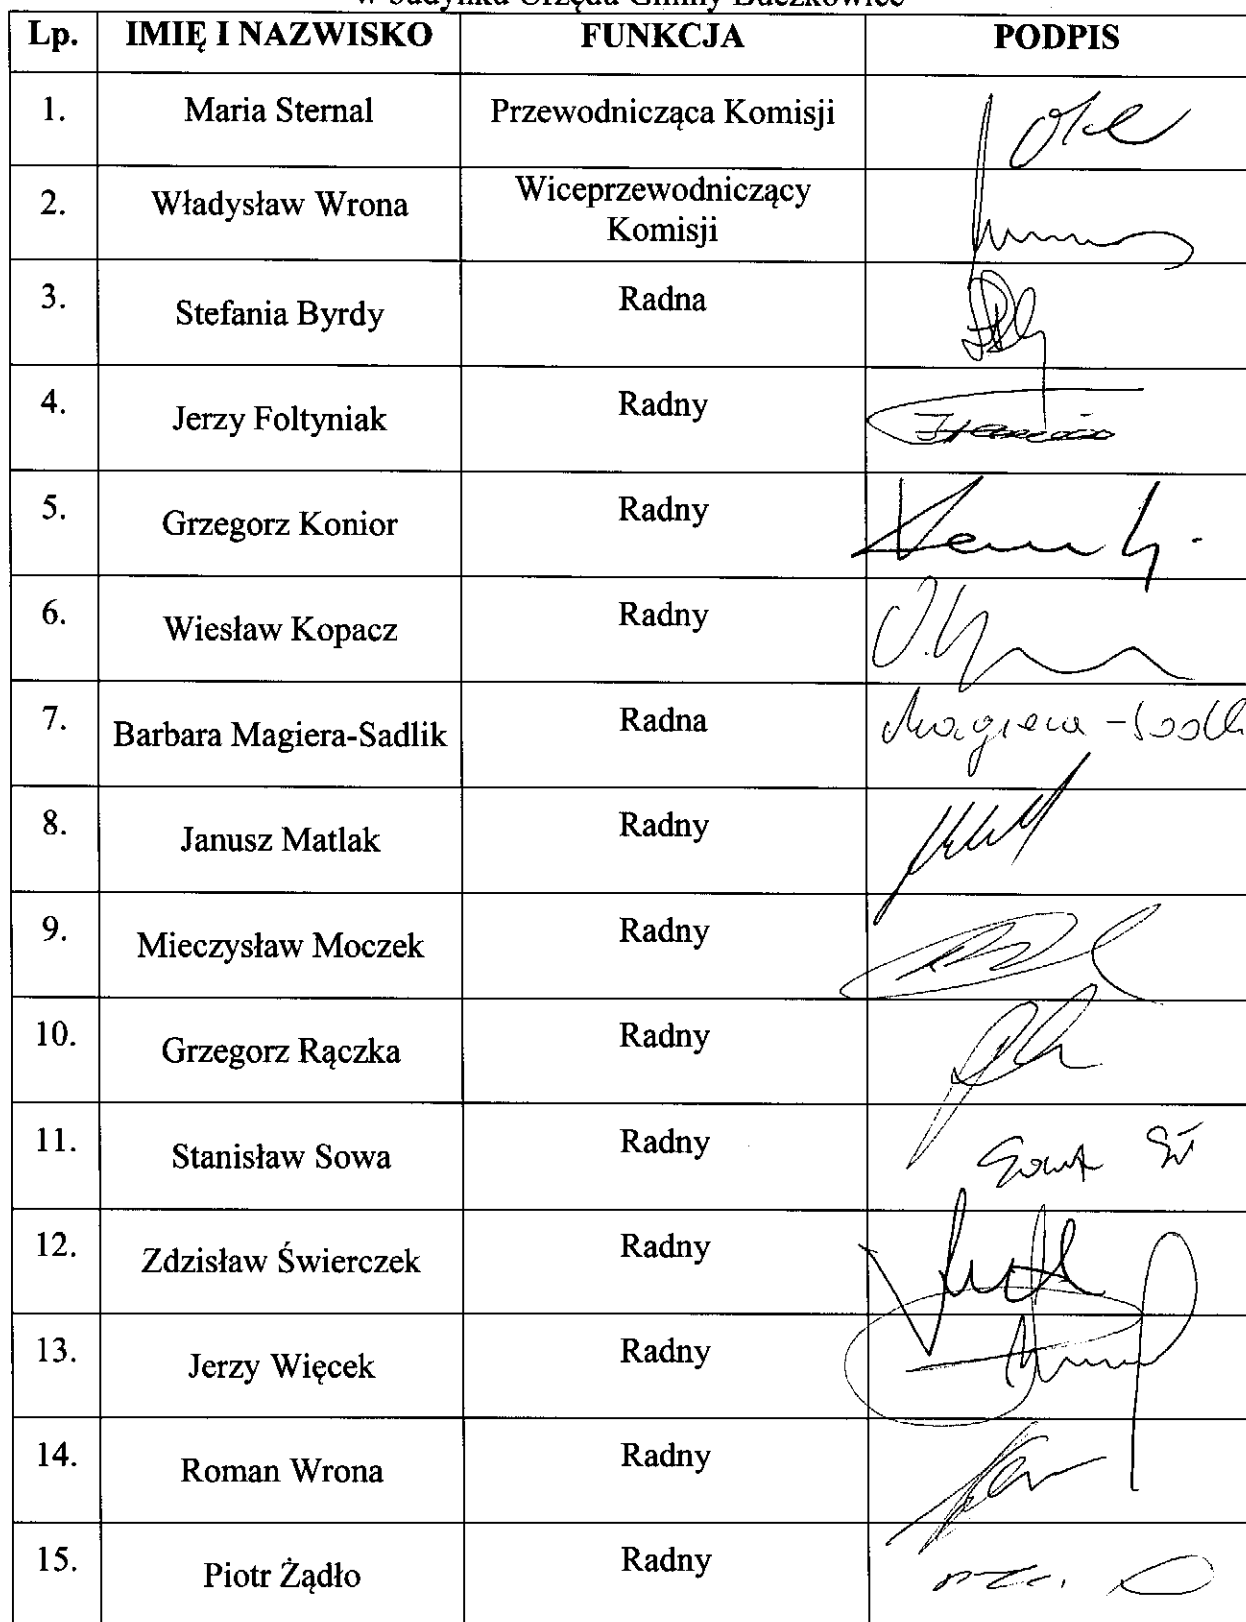 w budynku Urzędu Gminy Buczkowice
Lp. IMIĘ I NAZWISKO FUNKCJA PODPIS
1. Maria Sternal Przewodnicząca Komisji
2. Władysław Wrona Wiceprzewodniczący
Komisji
3. Stefania Byrdy Radna
4. Jerzy Foltyniak Radny
5. Grzegorz Konior Radny
6. Wiesław Kopacz Radny
7. Barbara Magiera-Sadlik Radna Magiera-Sadlik
8. Janusz Matlak Radny
9. Mieczysław Moczek Radny
10. Grzegorz Rączka Radny
11. Stanisław Sowa Radny Sowa St
12. Zdzisław Świerczek Radny
13. Jerzy Więcek Radny
14. Roman Wrona Radny
15. Piotr Żądło Radny